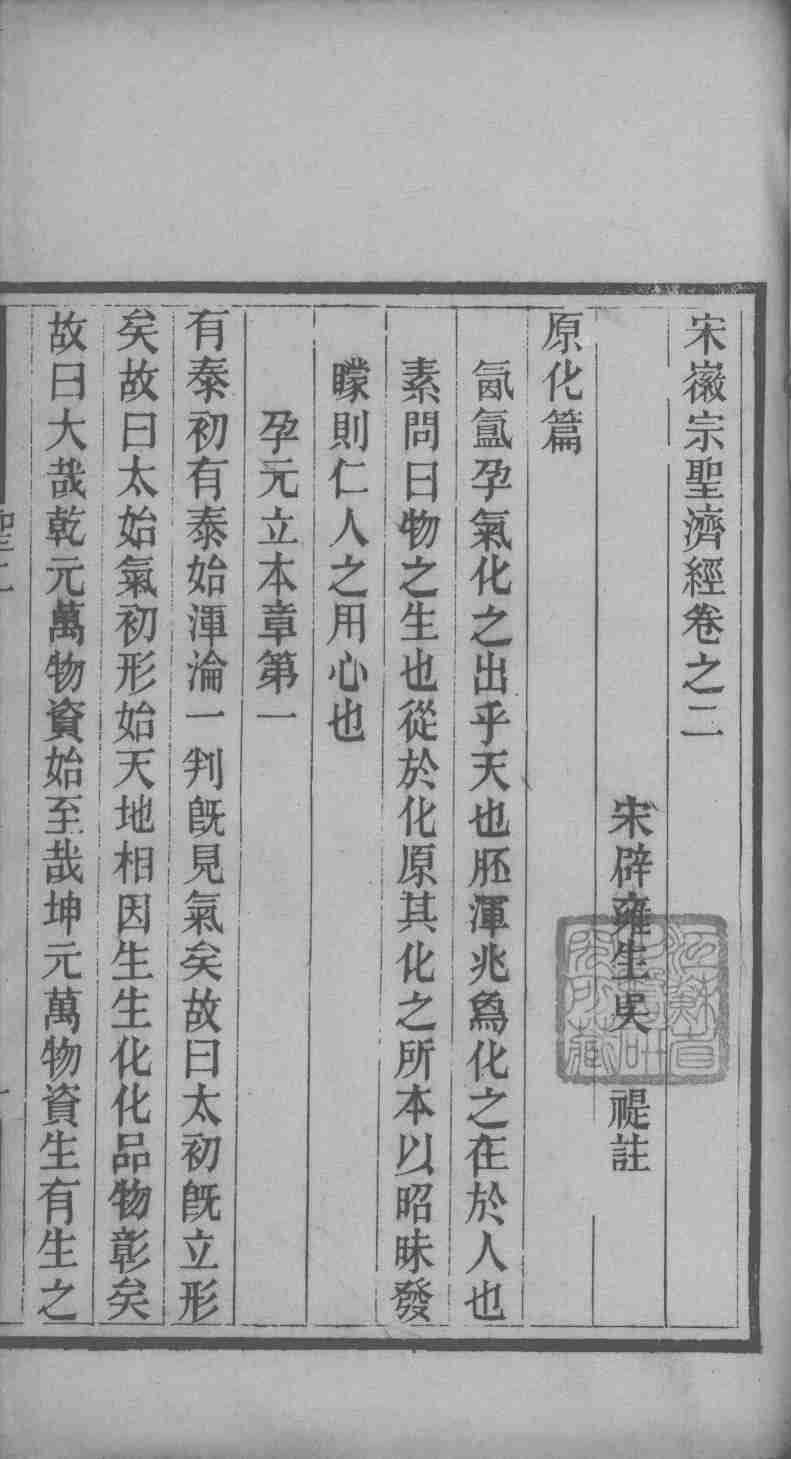 宋徽宗聖濟經卷之二
宋辟雍生吳　禔註
原化篇
氤氳孕氣化之出乎天也胚渾兆爲化之在於人也
素問曰物之生也從於化原其化之所本以昭昧發
矇則仁人之用心也
孕元立本章第一
有泰初有泰始渾淪一判旣見氣矣故曰太初旣立形
矣故曰太始氣初形始天地相因生生化化品物彰矣
故曰大哉乾元萬物資始至哉坤元萬物資生有生之
聖二
一